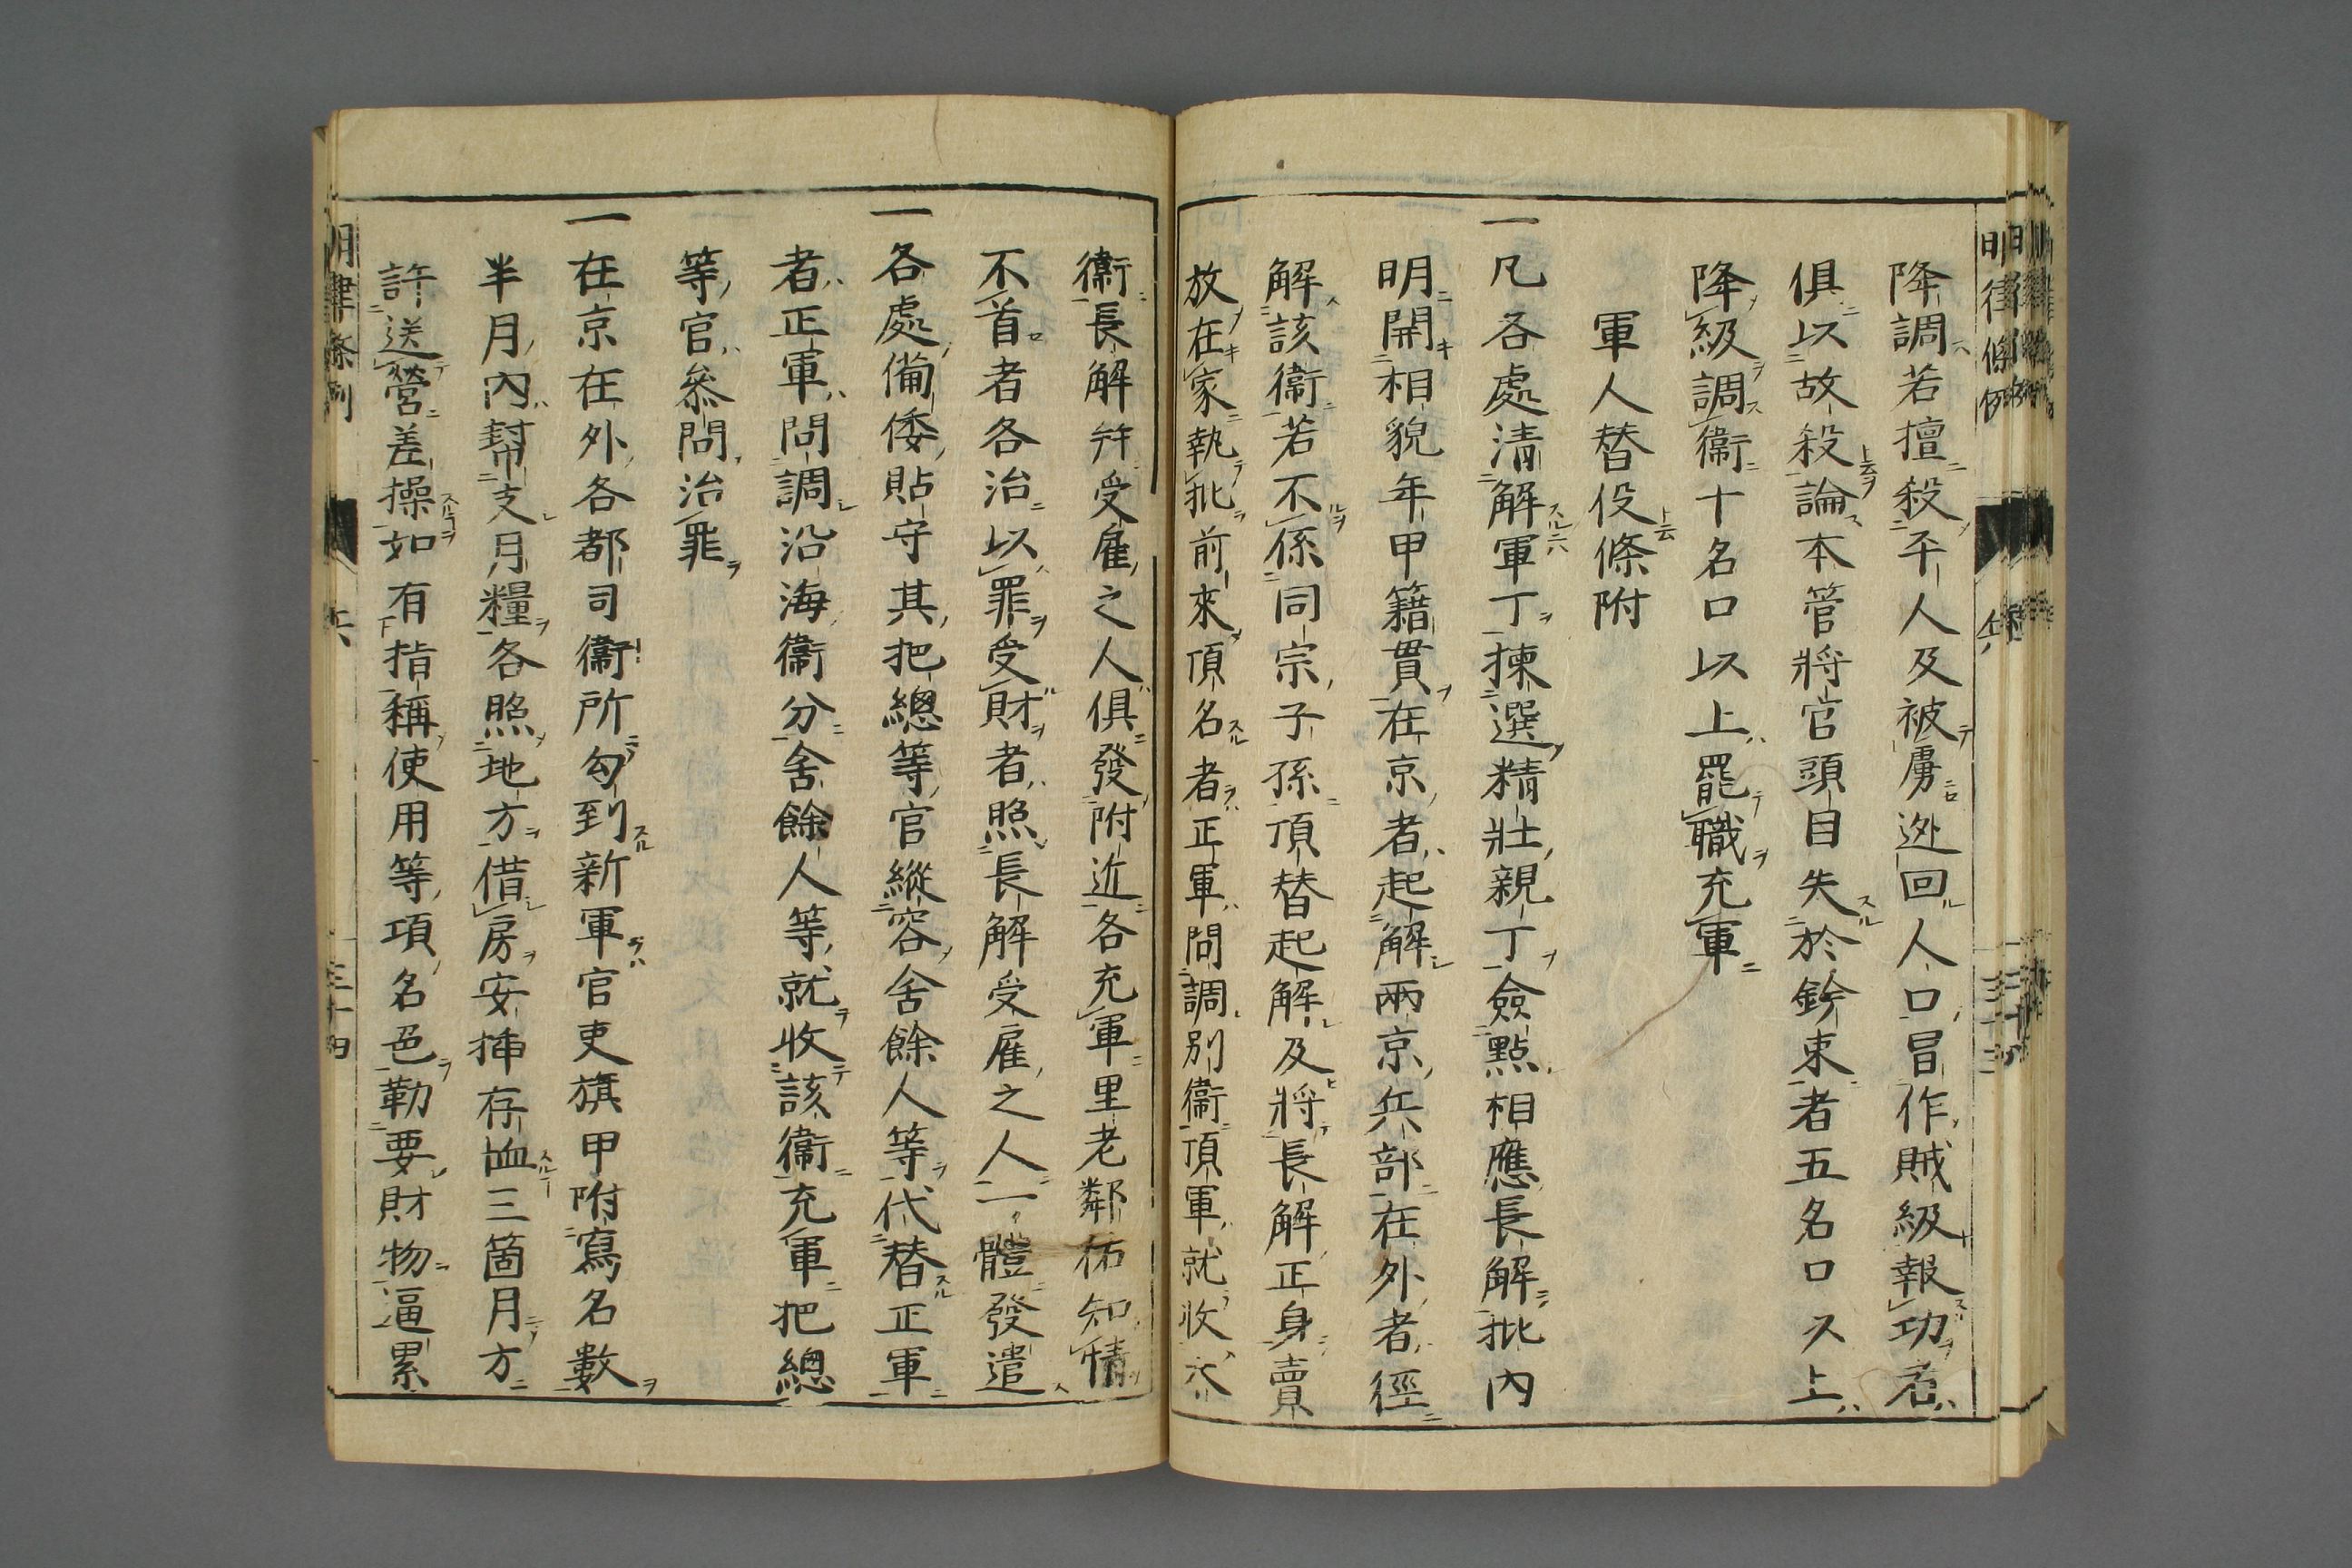 降調若擅殺平人及被虜逃回人口冒作賊級報功者
俱以故殺論本管將官頭目失於鈐束者五名口以上
降級調衞十名口以上罷職充軍
軍人替役條附
一凡各處清解軍丁揀選精壯親丁僉點相應長解批內
明開相貌年甲籍貫在京者起解兩京兵部在外者徑
解該衞若不係同宗子孫頂替起解及將長解正身賣
放在家執批前來頂名者正軍問調別衞頂軍就收本
衞長解幷受雇之人俱發附近各充軍里老鄰佑知情
不首者各治以罪受財者照長解受雇之人一體發遣
一各處備倭貼守其把總等官縱容舍餘人等代替正軍
者正軍問調沿海衞分舍餘人等就收該衞充軍把總
等官叅問治罪
一在京在外各都司衞所勾到新軍官吏旗甲附寫名數
半月內幇支月糧各照地方借房安揷存恤三箇月方
許送營差操如有指稱使用等項名色勒要財物逼累
明律條例 兵 三十三
明律條例 兵 三十四